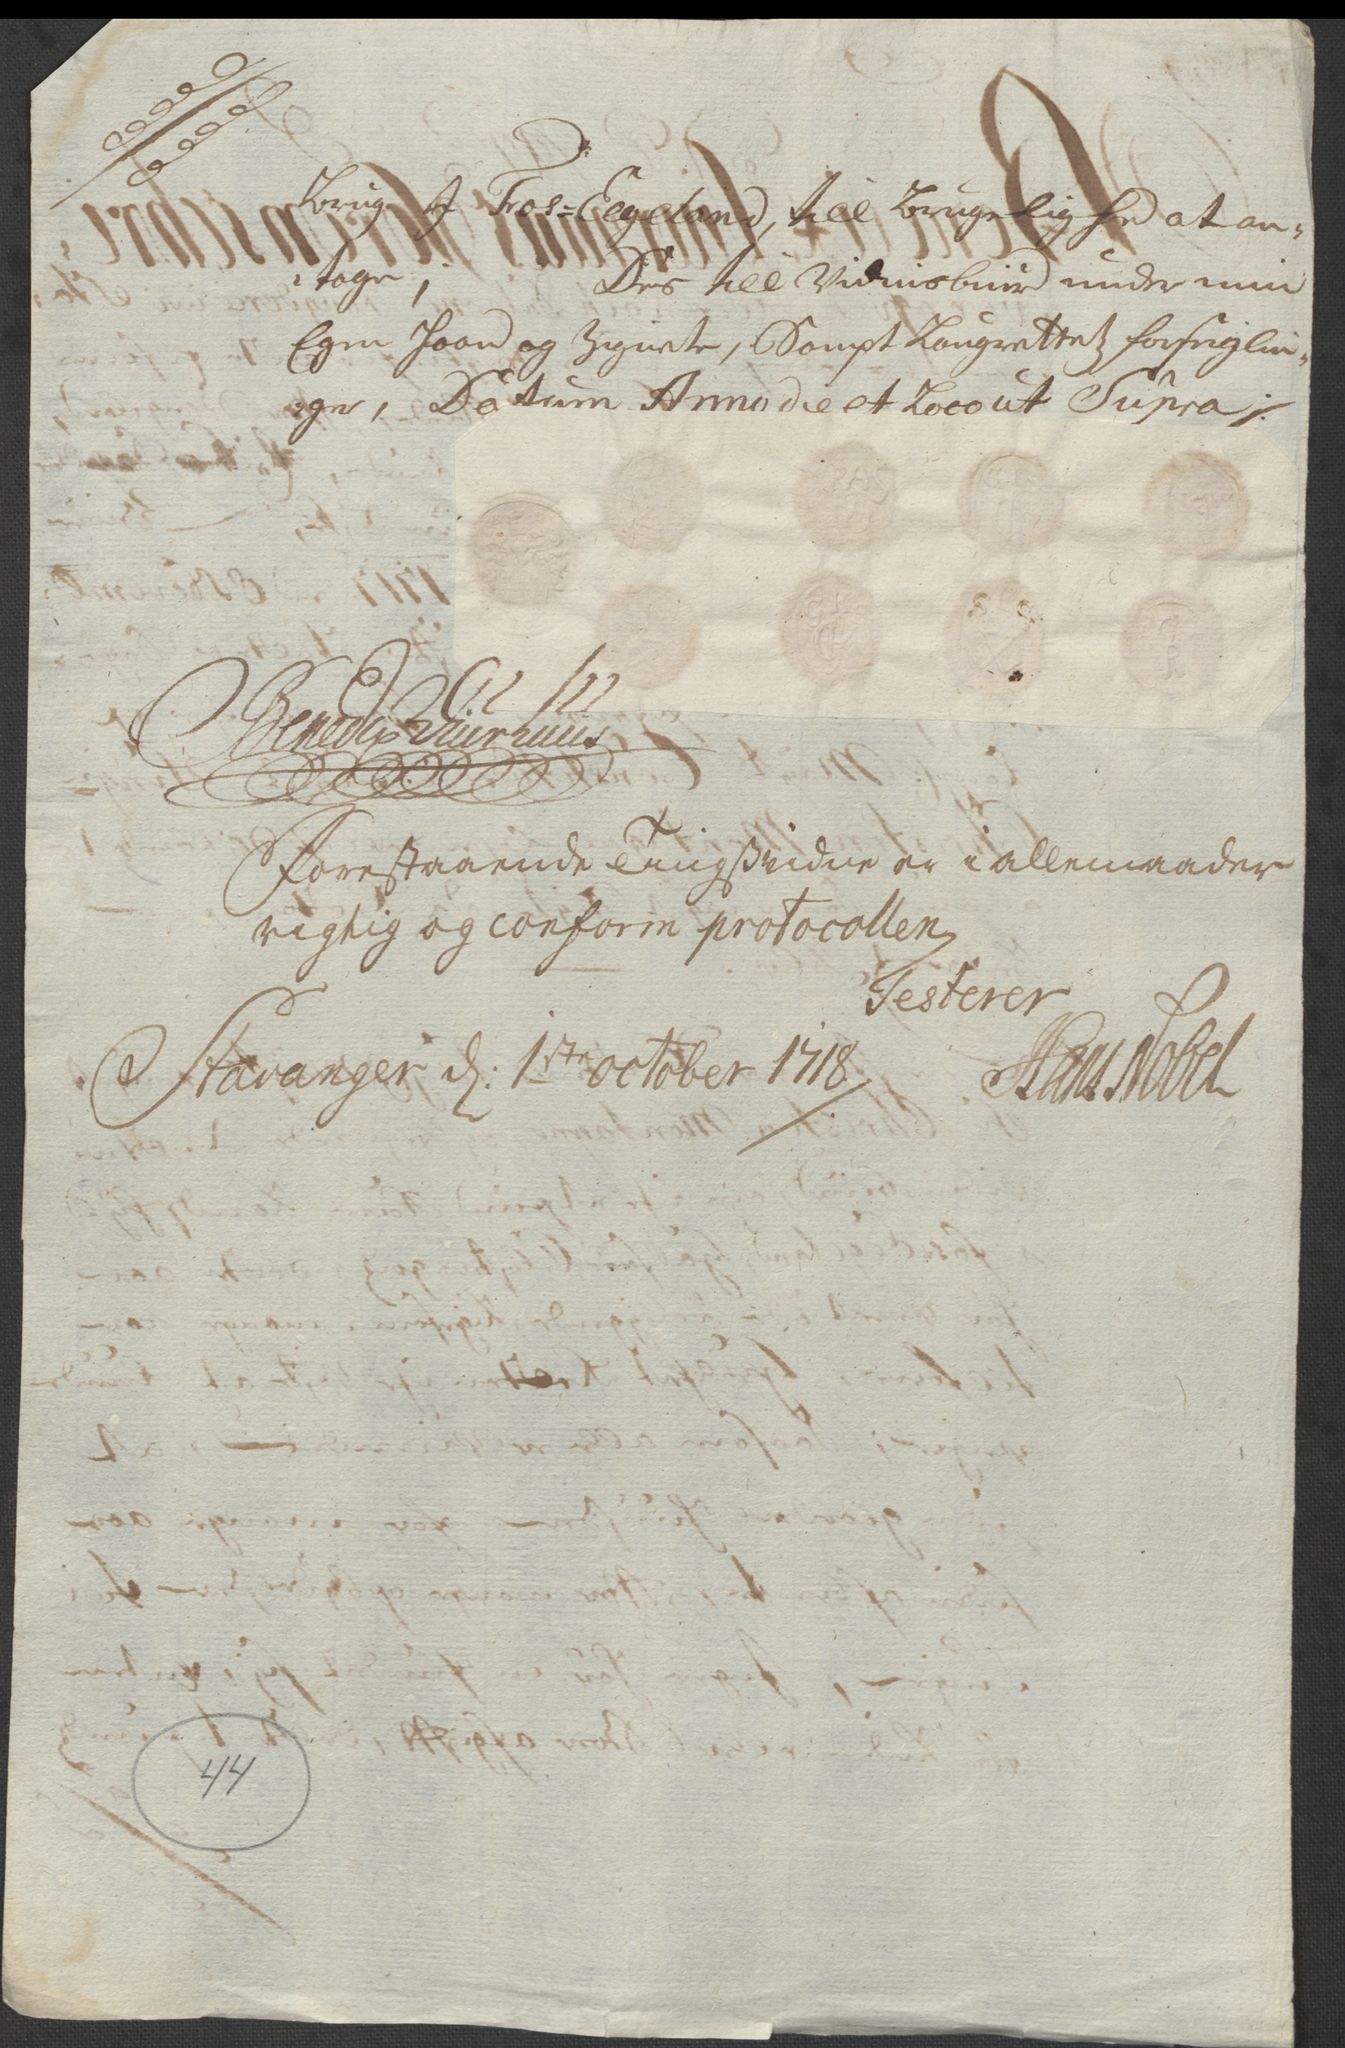 brug af Fros=Eegeland, till brugelighed at an„
„tage, ; Des till Vidnisbiurd under min
Egen Haand og Zignete, Sampt Laugrettetz forseiglin„
„ger, Datum Anno die et Loco ut Supra ;/.
Forestaaende Tingsvidne er i allemaader
rigtig og conform protocollen
Testerer
Stavanger d: 1ste october 1718 Hans Nobel
44